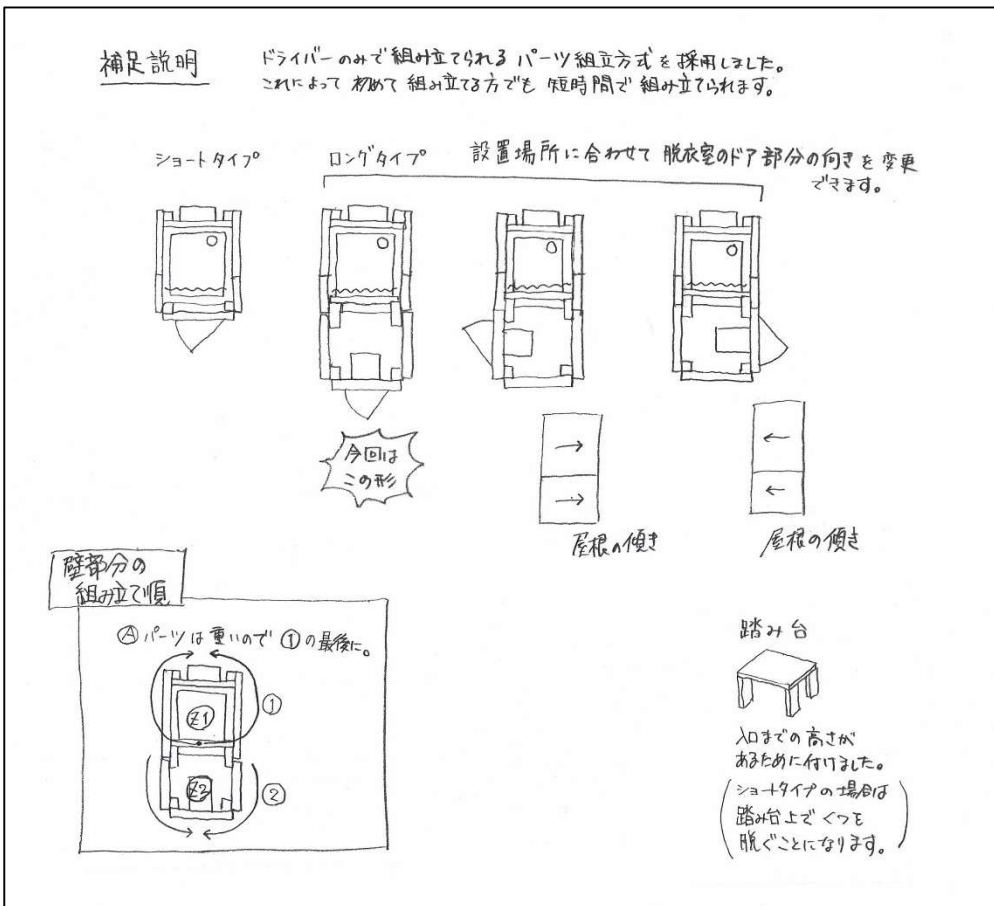 補足説明
ドライバーのみで組み立てられるパーツ組立方式を採用しました。
これによって初めて組み立てる方でも短時間で組み立てられます。
ショートタイプ
ロングタイプ
設置場所に合わせて脱衣室のドア部分の向きを変更
できます。
今回は
この形
→
→
屋根の傾き
←
←
屋根の傾き
壁部分の
組み立て順
Ⓐパーツは重いので①の最後に。
①
Z1
Z2
②
踏み台
入口までの高さが
あるために付けました。
(ショートタイプの場合は
踏み台上でくつを
脱ぐことになります。)